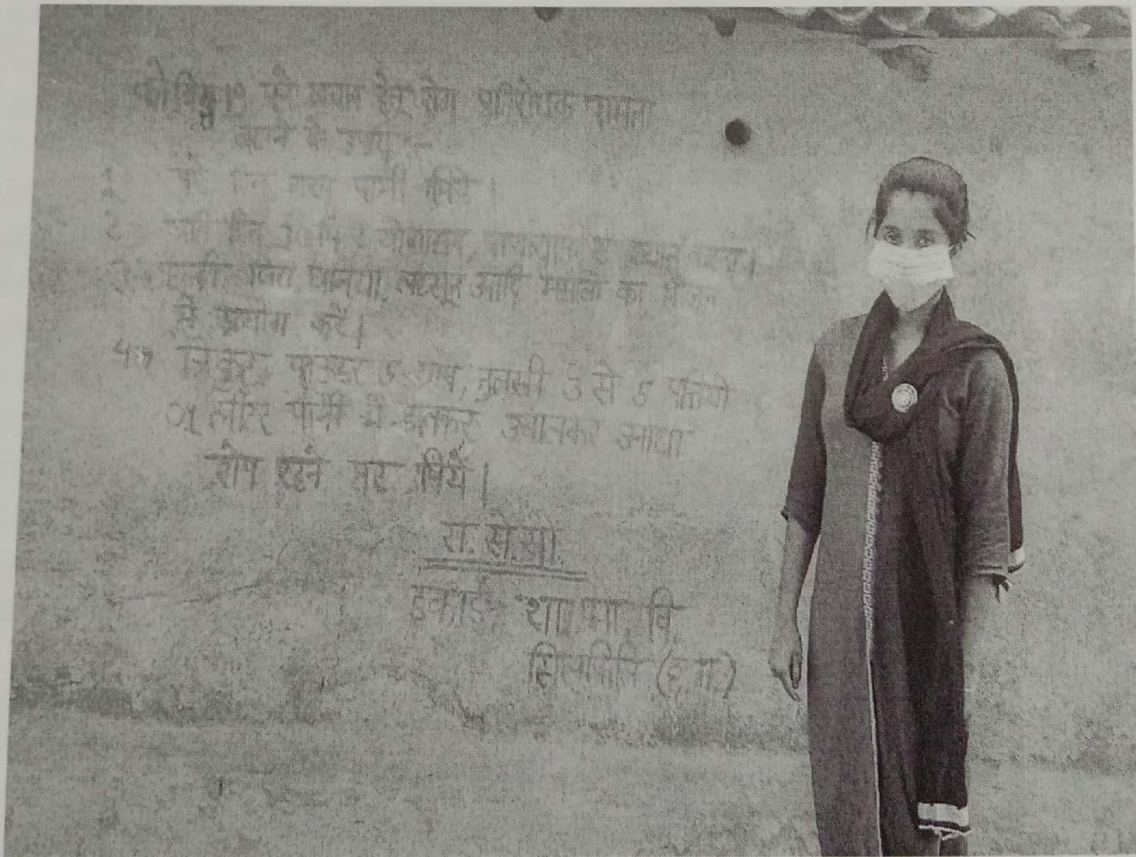 कोविड19 से बचाव हेतु रोग प्रतिरोधक क्षमता
बढ़ाने के उपाय :-
1 पूरे दिन गरम पानी पिये।
2- प्रति दिन 30 मि. योगासन, प्राणायाम व ध्यान करना।
3- हल्दी, जिरा, धनिया, लहसून आदि मसालों का भोजन
में प्रयोग करें।
4- त्रिकुट पाउडर 5 ग्राम, तुलसी 3 से 5 पत्तियाँ
01 लीटर पानी में डालकर उबालकर आधा
शेष रहने पर पिये।
रा.से.यो.
इकाई शा. मा. वि.
(छ.ग.)